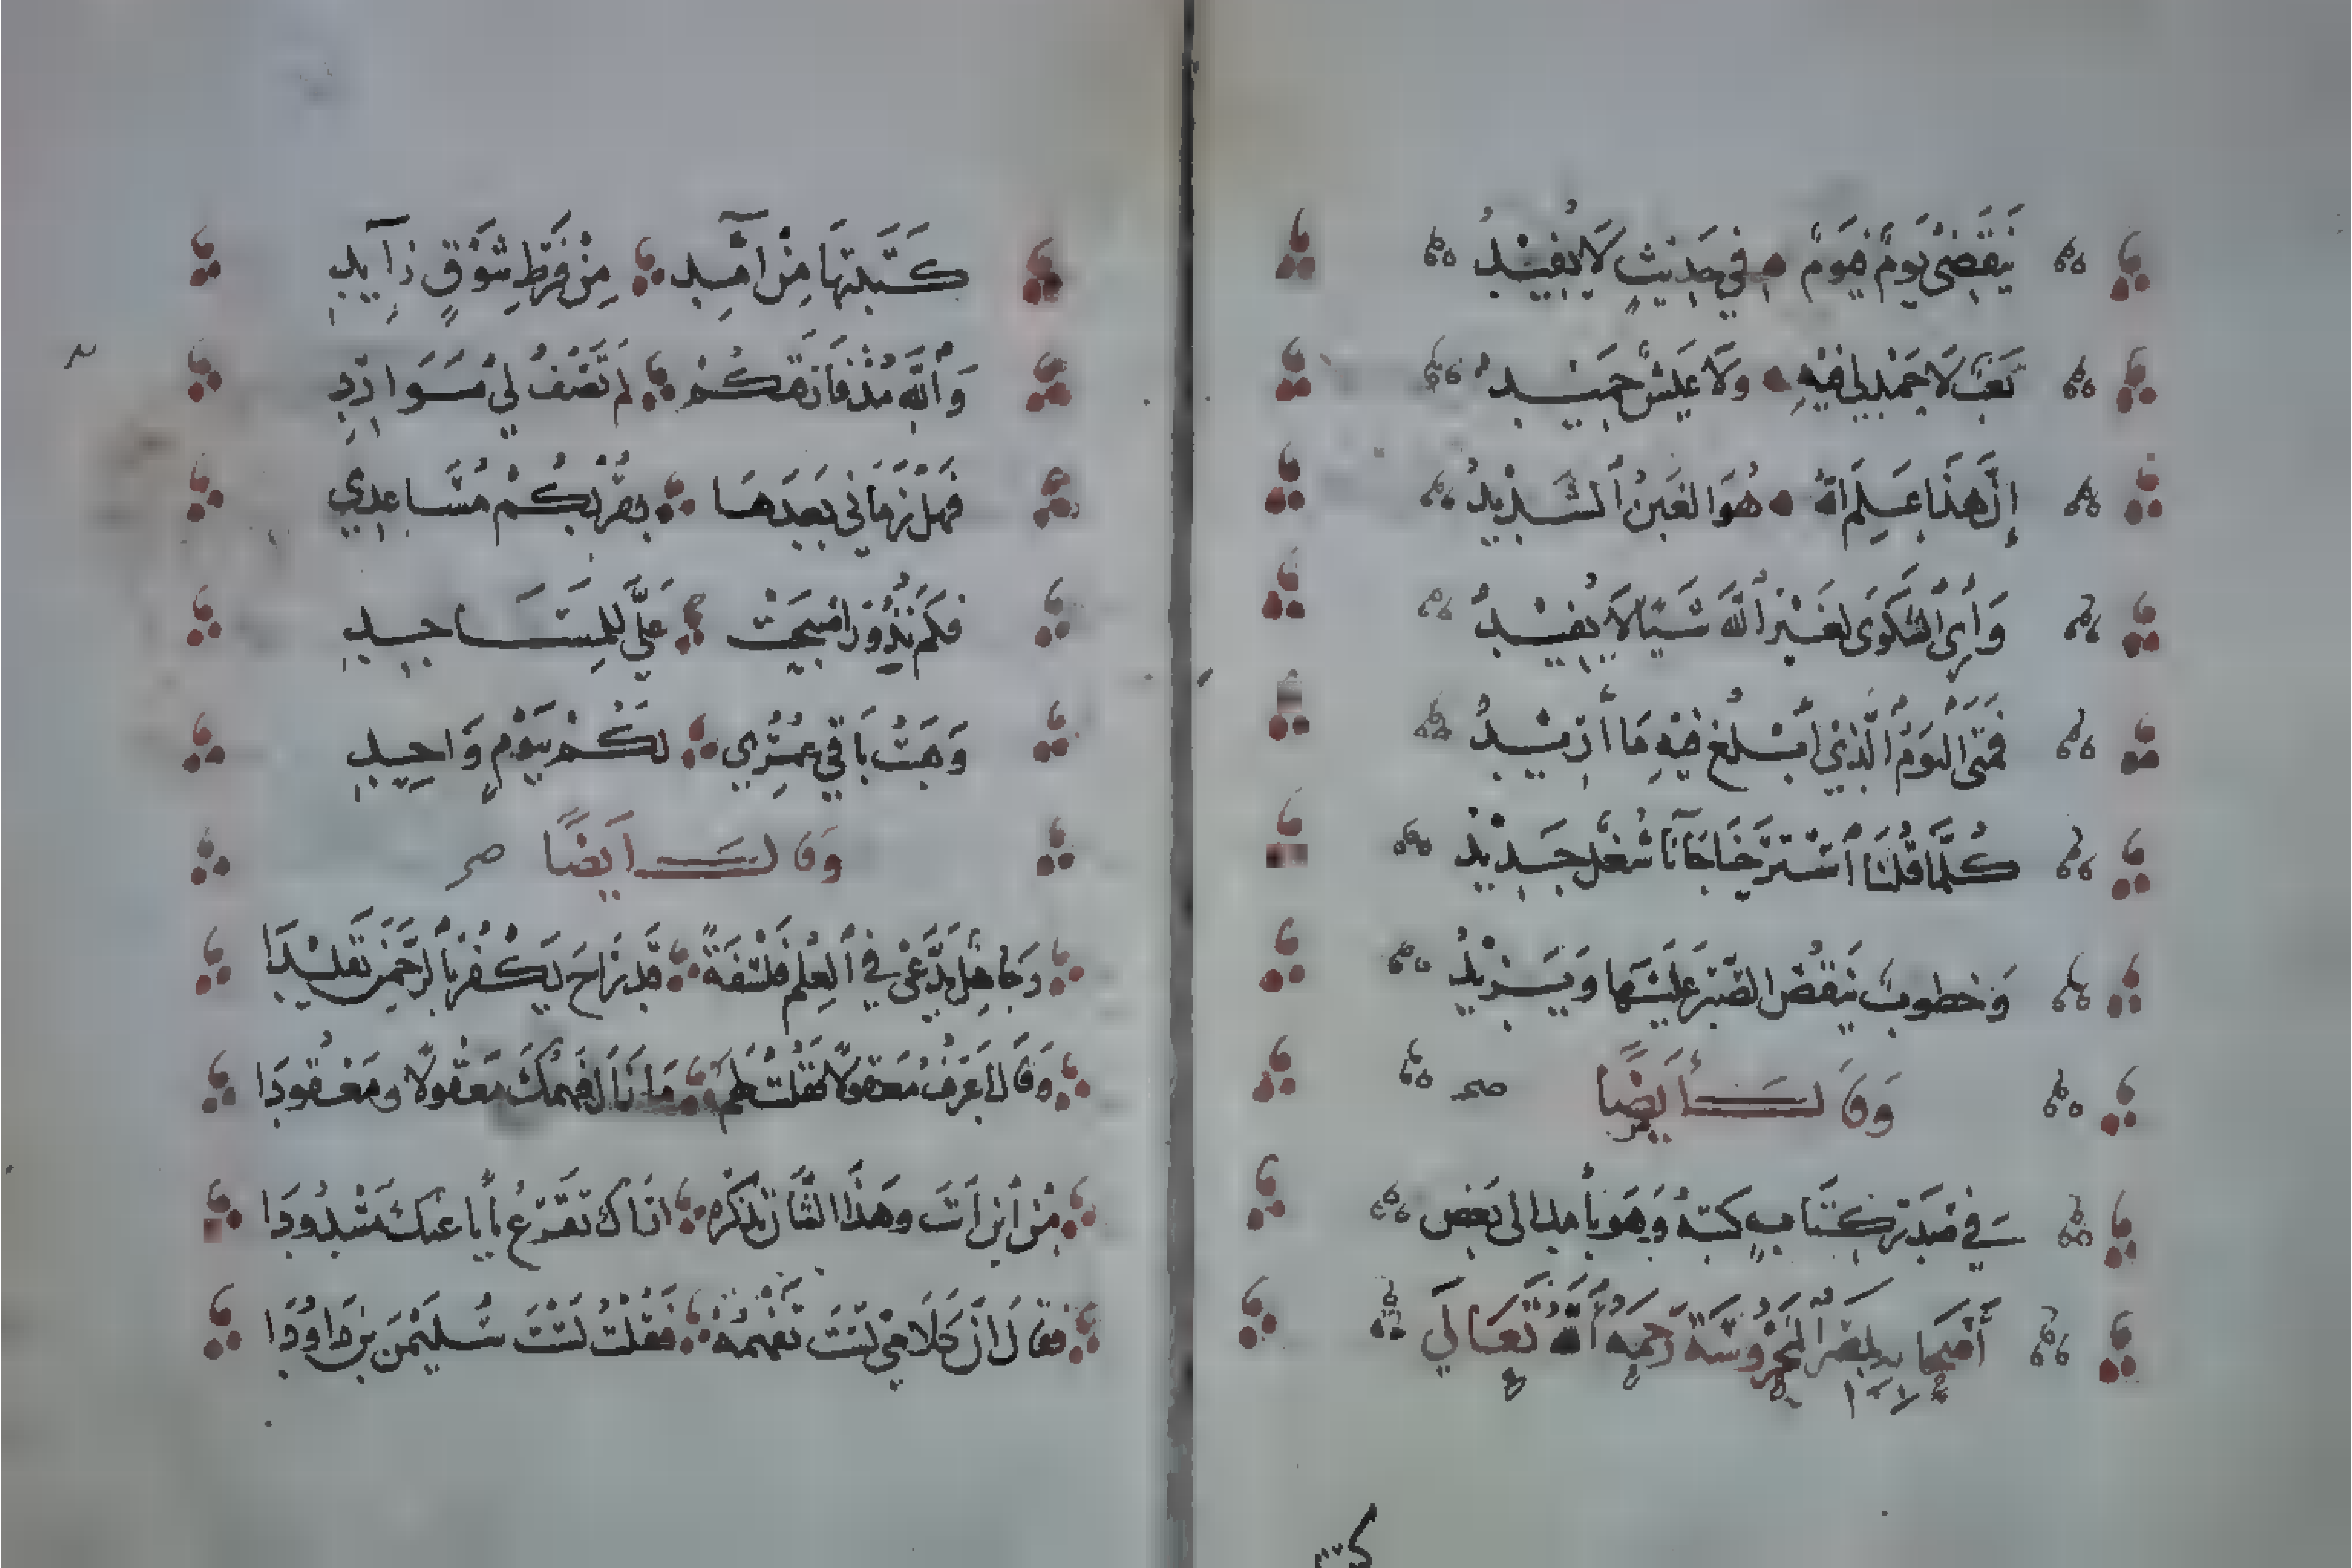 يَنْقَضِي يَوْمٌ فَيَوْمٌ في حَدِيثٍ لَا يُفِيدُ
تَعَبٌ لَا حَمْدَ لِي فِيهِ وَلَا عَيْشٌ حَمِيدُ
إِنَّ هَذَا عَلِمَ اللهُ هُوَ الغَبنُ الشَدِيدُ
وَأَرَى الشَّكْوَى لِغَيْرِ اللَّهِ شَيْئًا لَا يُفِيدُ
فَمَتَى اليَوْمُ الَّذِي أَبْلُغُ فِيهِ مَا أُرِيدُ
كُلَّمَا قُلْنَا اسْتَرَحْنَا جَاءَنَا شُغْلٌ جَدِيدُ
وَخطوبٌ يَنْقُصُ الصَّبْرُ عَلَيْهَا وَيَزِيدُ
وَقَالَ أَيْضًا صح
في صَدْرِ كِتَابٍ كَتَبَهُ وَهُوَ بآمِدَ الى بَعْضِ
أَصْحَابِهِ بِمِصْرَ الْمَحْرُوسَةِ رَحِمَهُ اللَّهُ تَعَالَى
كتبتها
كَتَبْتُهَا مِنْ آمِدِ مِنْ فَرْطِ شَوْقٍ زَايِدِ
وَاللَّهِ مُذْ فَارَقْتُكُمْ لَمْ تَصْفُ لِي مَوَارِدِ
فَهَلْ زَمَانِي بَعْدَهَا بِقُرْبِكُمْ مُسَاعِدِي
فَكَمْ نُذُورٍ أَصْبَحَتْ عَلَيَّ لِلْمَسَاجِدِ
وَهَبْتُ بَاقِي عُمْرِي لَكُمْ بِيَوْمٍ وَاحِدِ
وَقَالَ أَيْضًا صح
وَجَاهِلٍ يَدَّعِي فِي الْعِلْمِ فَلْسَفَةً قَدْ رَاحَ يَكْفُرُ بِالرَّحْمَنِ تَقْلِيدَا
وَقَالَ أَعْرِفُ مَعْقُولًا فَقُلْتُ نَعَمْ عَنَّيْتَ نَفْسَكَ مَعْقُولًا وَمَعْقُودَا
مِنْ أَيْنَ أَنْتَ وَهَذَا الشَّأْنُ تَذْكُرُهُ أَرَاكَ تَقْرَعُ بَابًا عَنْكَ مَسْدُودَا
فَقَالَ إِنَّ كَلَامِي لَسْتَ تَفْهَمُهُ فَقُلْتُ لَسْتُ سُلَيْمَنَ بْنَ دَاوُدَا